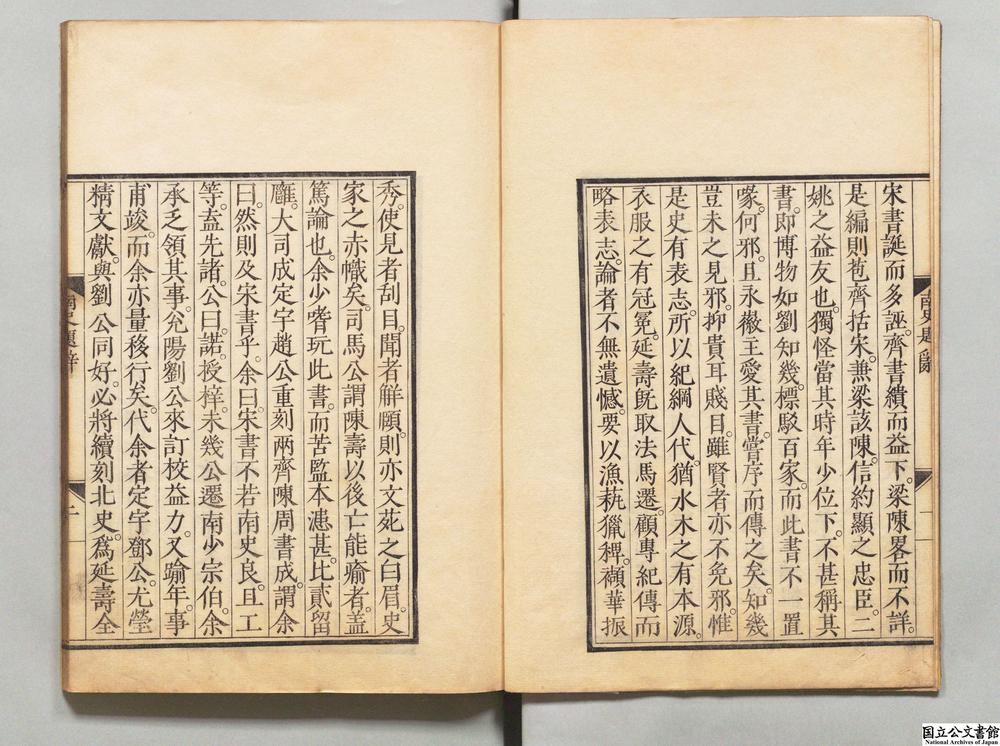 宋書誕而多誣。齊書纇而益下。梁陳畧而不詳。
是編則苞齊括宋。兼梁該陳。信約顯之忠臣。二
姚之益友也。獨怪當其時年少位下。不甚稱其
書。即博物如劉知幾。標駁百家。而此書不一置
喙。何邪。且永徽主愛其書。嘗序而傳之矣。知幾
豈未之見邪。抑貴耳賤目。雖賢者亦不免邪。惟
是史有表志。所以紀綱人代。猶水木之有本源。
衣服之有冠冕。延壽旣取法馬遷。顧專紀傳而
略表志。論者不無遺憾。要以漁蓺獵稗。襭華振
南史題辭
一
秀。使見者刮目。聞者解頤。則亦文苑之白眉。史
家之赤幟矣。司馬公謂陳壽以後亡能踰者。蓋
篤論也。余少嗜玩此書。而苦監本漶甚。比貳留
廱。大司成定宇趙公重刻兩齊陳周書成。謂余
曰。然則及宋書乎。余曰。宋書不若南史良。且工
等。盍先諸。公曰。諾。授梓。未幾公遷南少宗伯。余
承乏領其事。兊陽劉公來訂校益力。又踰年。事
甫竣。而余亦量移行矣。代余者定宇鄧公。尤瑩
精文獻。與劉公同好。必將續刻北史。爲延壽全
南史題辭
二
国立公文書館
National Archives of Japan